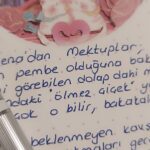 ena'dan Mektuplar,
pembe olduğuna bak
görebilen dolap dahi m
daki "ölmez çiçek" y
çok o bilir, bakala
beklenmeyen kavuş